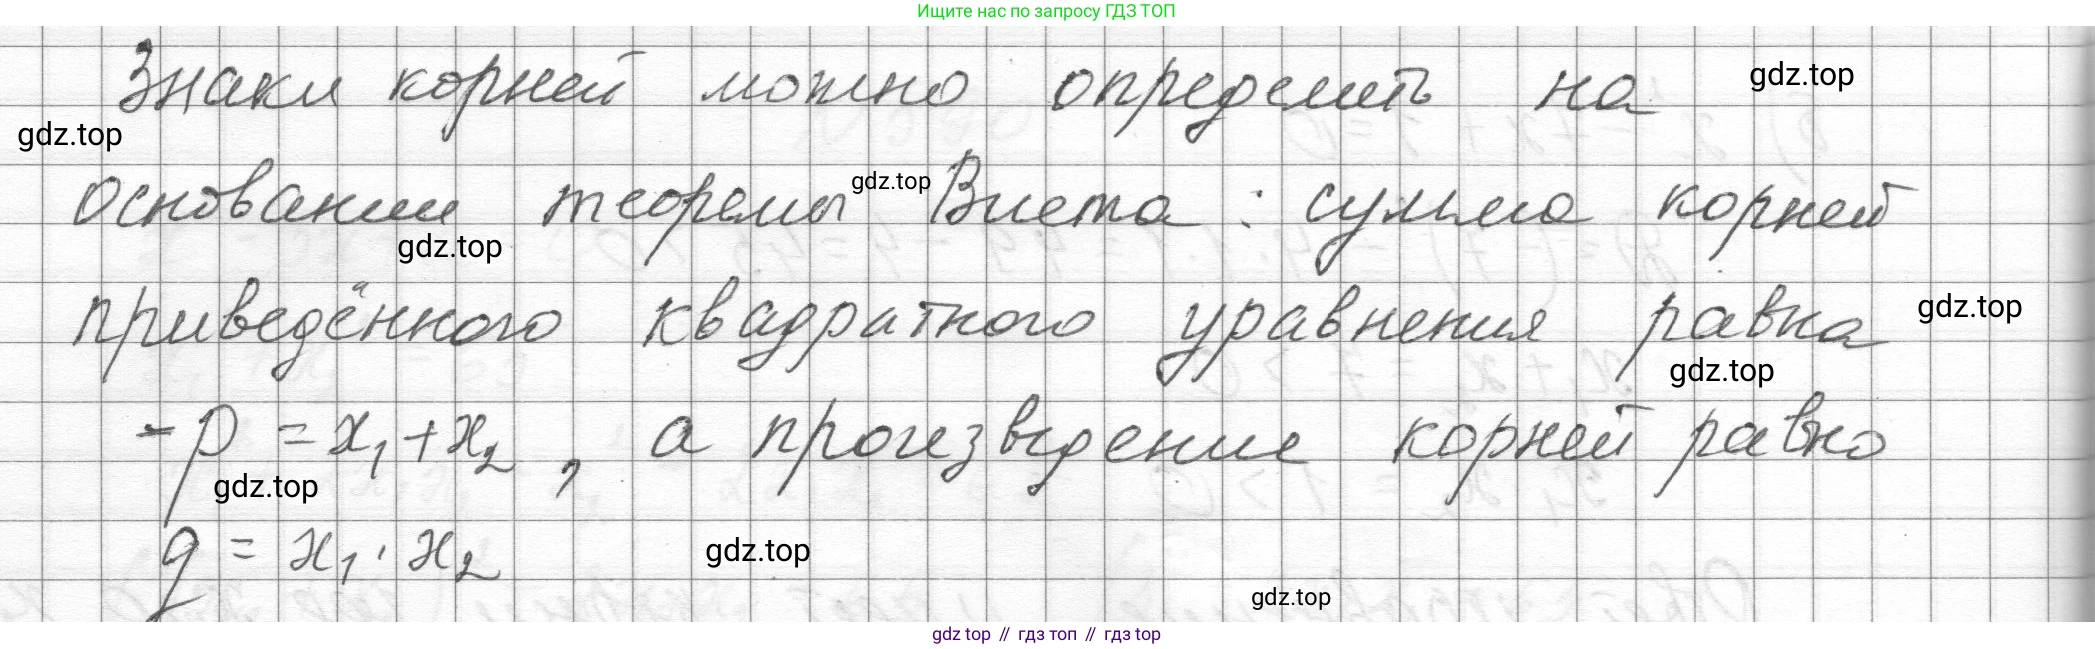 Ищите нас по запросу ГДЗ ТОП
Знаки корней можно определить на
gdz.top
gdz.top
основании теоремы Виета: сумма корней
gdz.top
gdz.top
приведённого квадратного уравнения равна
gdz.top
gdz.top
-p = x₁+x₂, а произведение корней равно
gdz.top
q = x₁·x₂
gdz.top
gdz.top
gdz top // гдз топ // гдз top